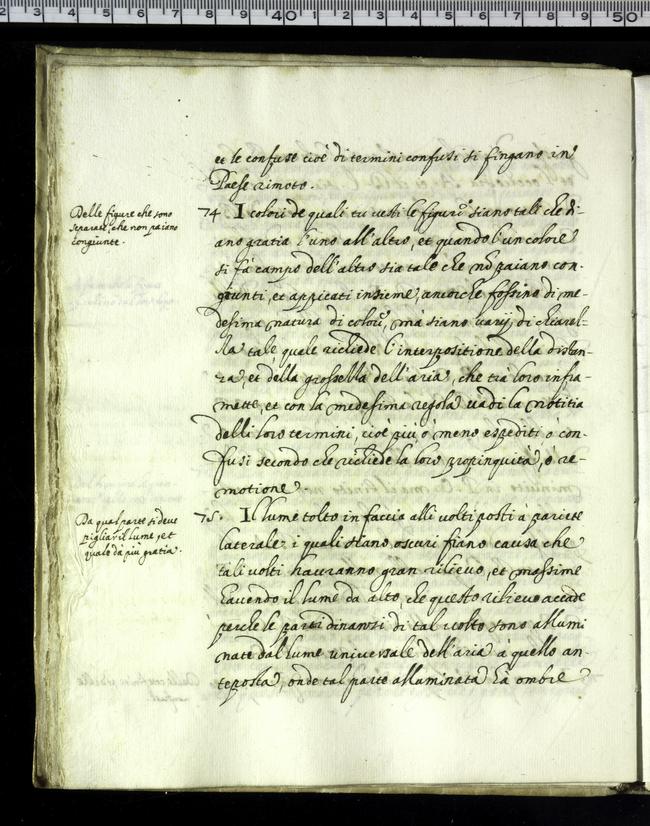 et le confuse cioè di termini confusi si fingano in
Paese rimoto.
Delle figure che sono
separate, che non paiano
congiunte.
74 I colori de quali tu vesti le figure siano tali che di-
ano gratia l'uno all'altro, et quando l'un colore
si fà campo dell'altro sia tale che nõ paiano con-
giunti, et appicati insieme, ancorche fossino di me-
desima natura di colore, mà siano varij di chiarel-
la tale quale richiede l'interpositione della distan-
za, et della grossezza dell'aria, che trà loro infra-
mette, et con la medesima regola vadi la notitia
delli loro termini, cioè più ò meno espediti ò con-
fusi secondo che richiede la loro propinquità, ò re-
motione.
Da qual parte si deve
pigliar il lume, et
quale dà più gratia.
75. Il lume tolto in faccia alli volti posti à pariete
laterale i quali siano oscuri fiano causa che
tali volti hauranno gran rilievo, et massime
havendo il lume da alto, che questo rilievo accade
perche le parti dinanzi di tal volto sono allumi
nate dal lume universale dell'aria à quello an-
teposta, onde tal parte alluminata hà ombre